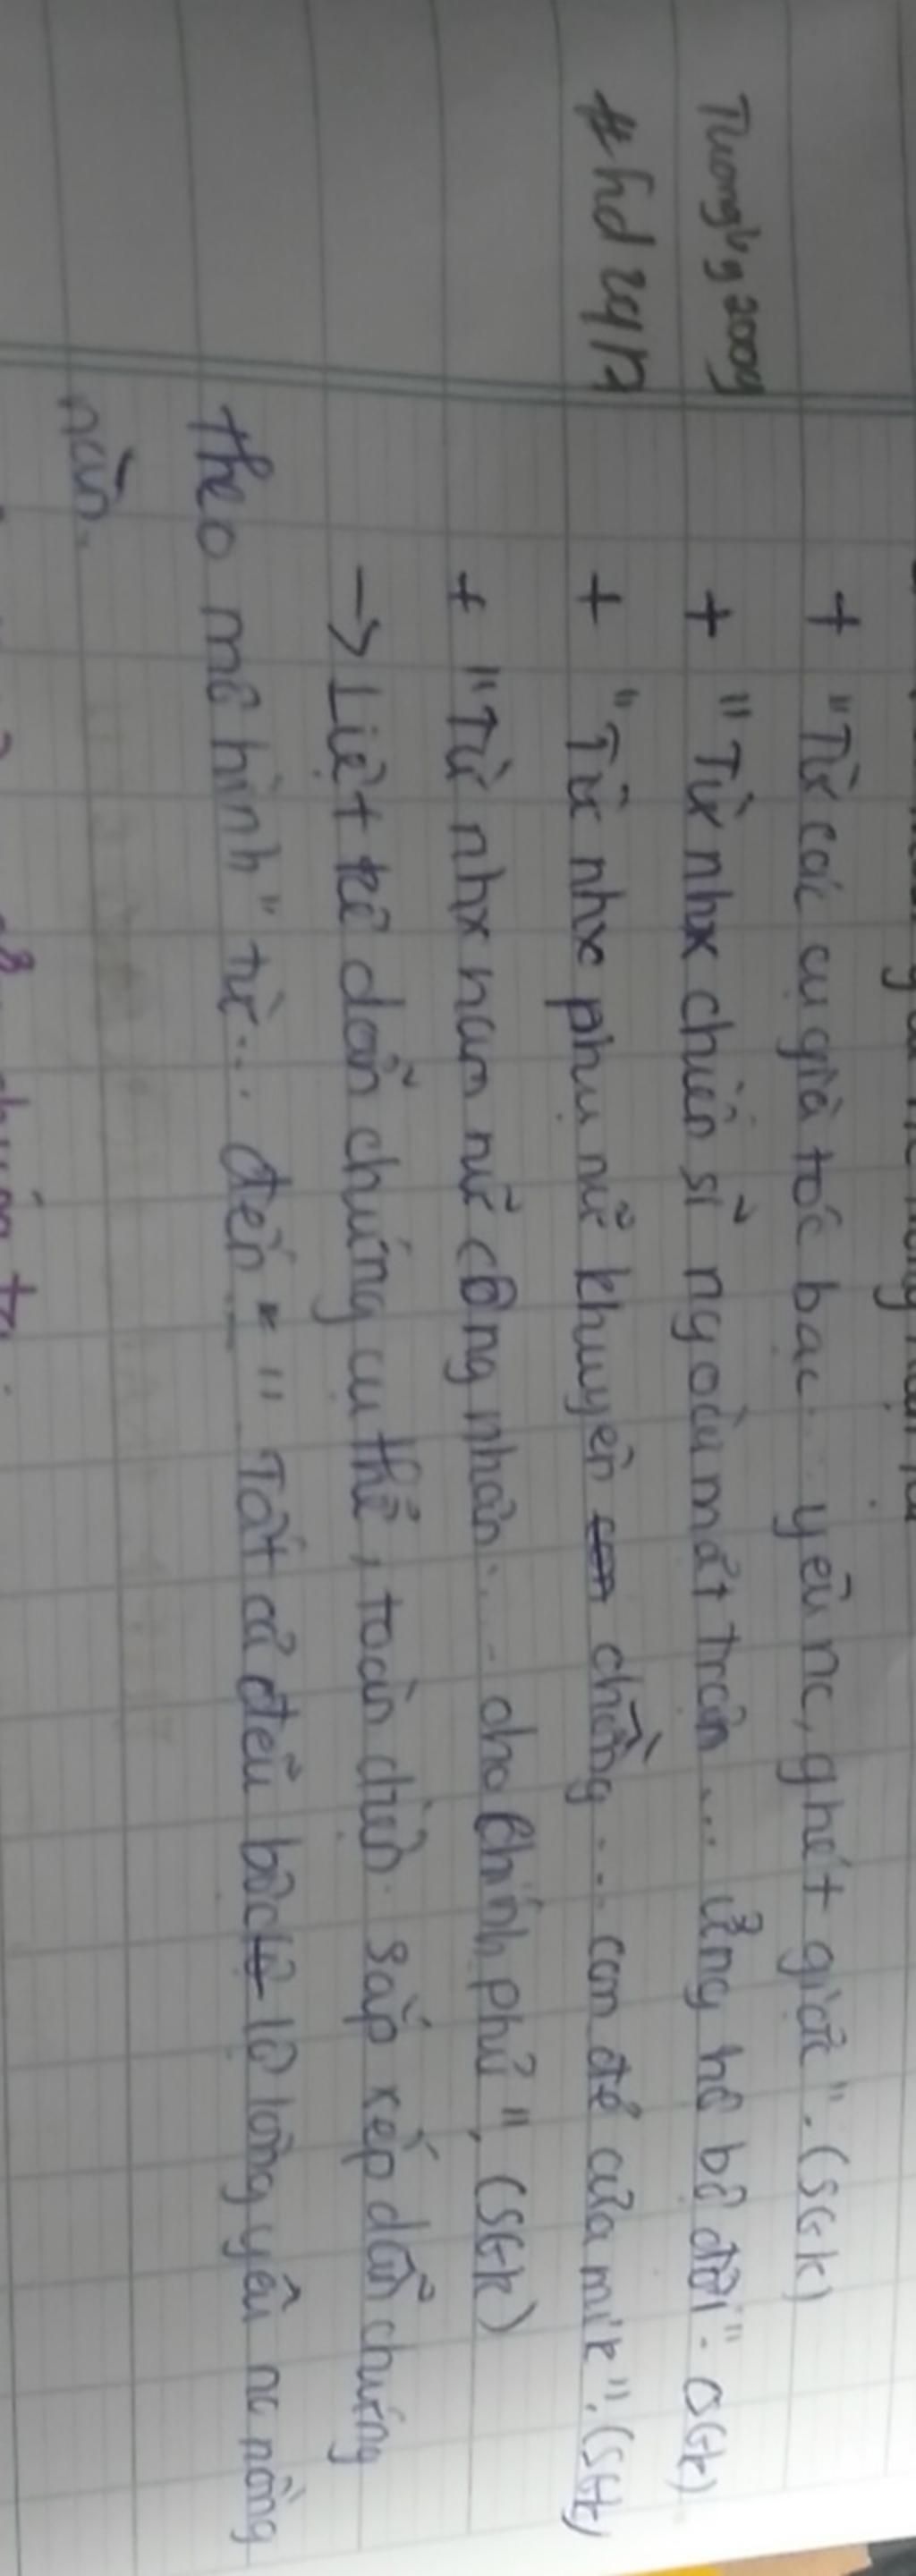 + "Từ các cụ già tóc bạc... yêu nc, ghét giặc". (SGK)
Thuong 2009 + "Từ nhx chiến sĩ ngoài mặt trận... ủng hộ bộ đội". (SGK)
#hd24/7 + "Từ nhx phụ nữ khuyên chồng... con đẻ của mik". (SGK)
+ "Từ nhx nam nữ công nhân... cho Chính phủ", (SGK)
-> Liệt kê dẫn chứng cụ thể, toàn diện. sắp xếp dẫn chứng
theo mô hình "từ... đến" Tất cả đều bộc lộ lòng yêu nc nồng
nàn.